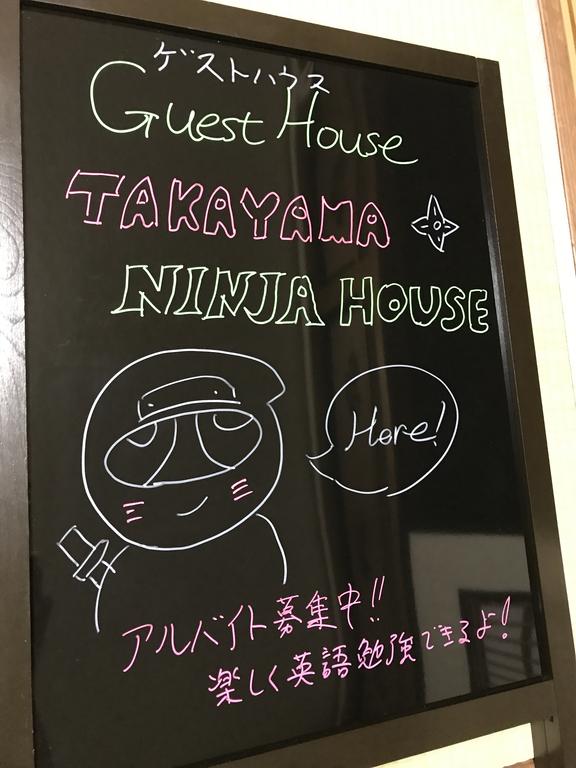 ゲストハウス
Guest House
TAKAYAMA
NINJA HOUSE
Here!
アルバイト募集中!!
楽しく英語勉強できるよ!